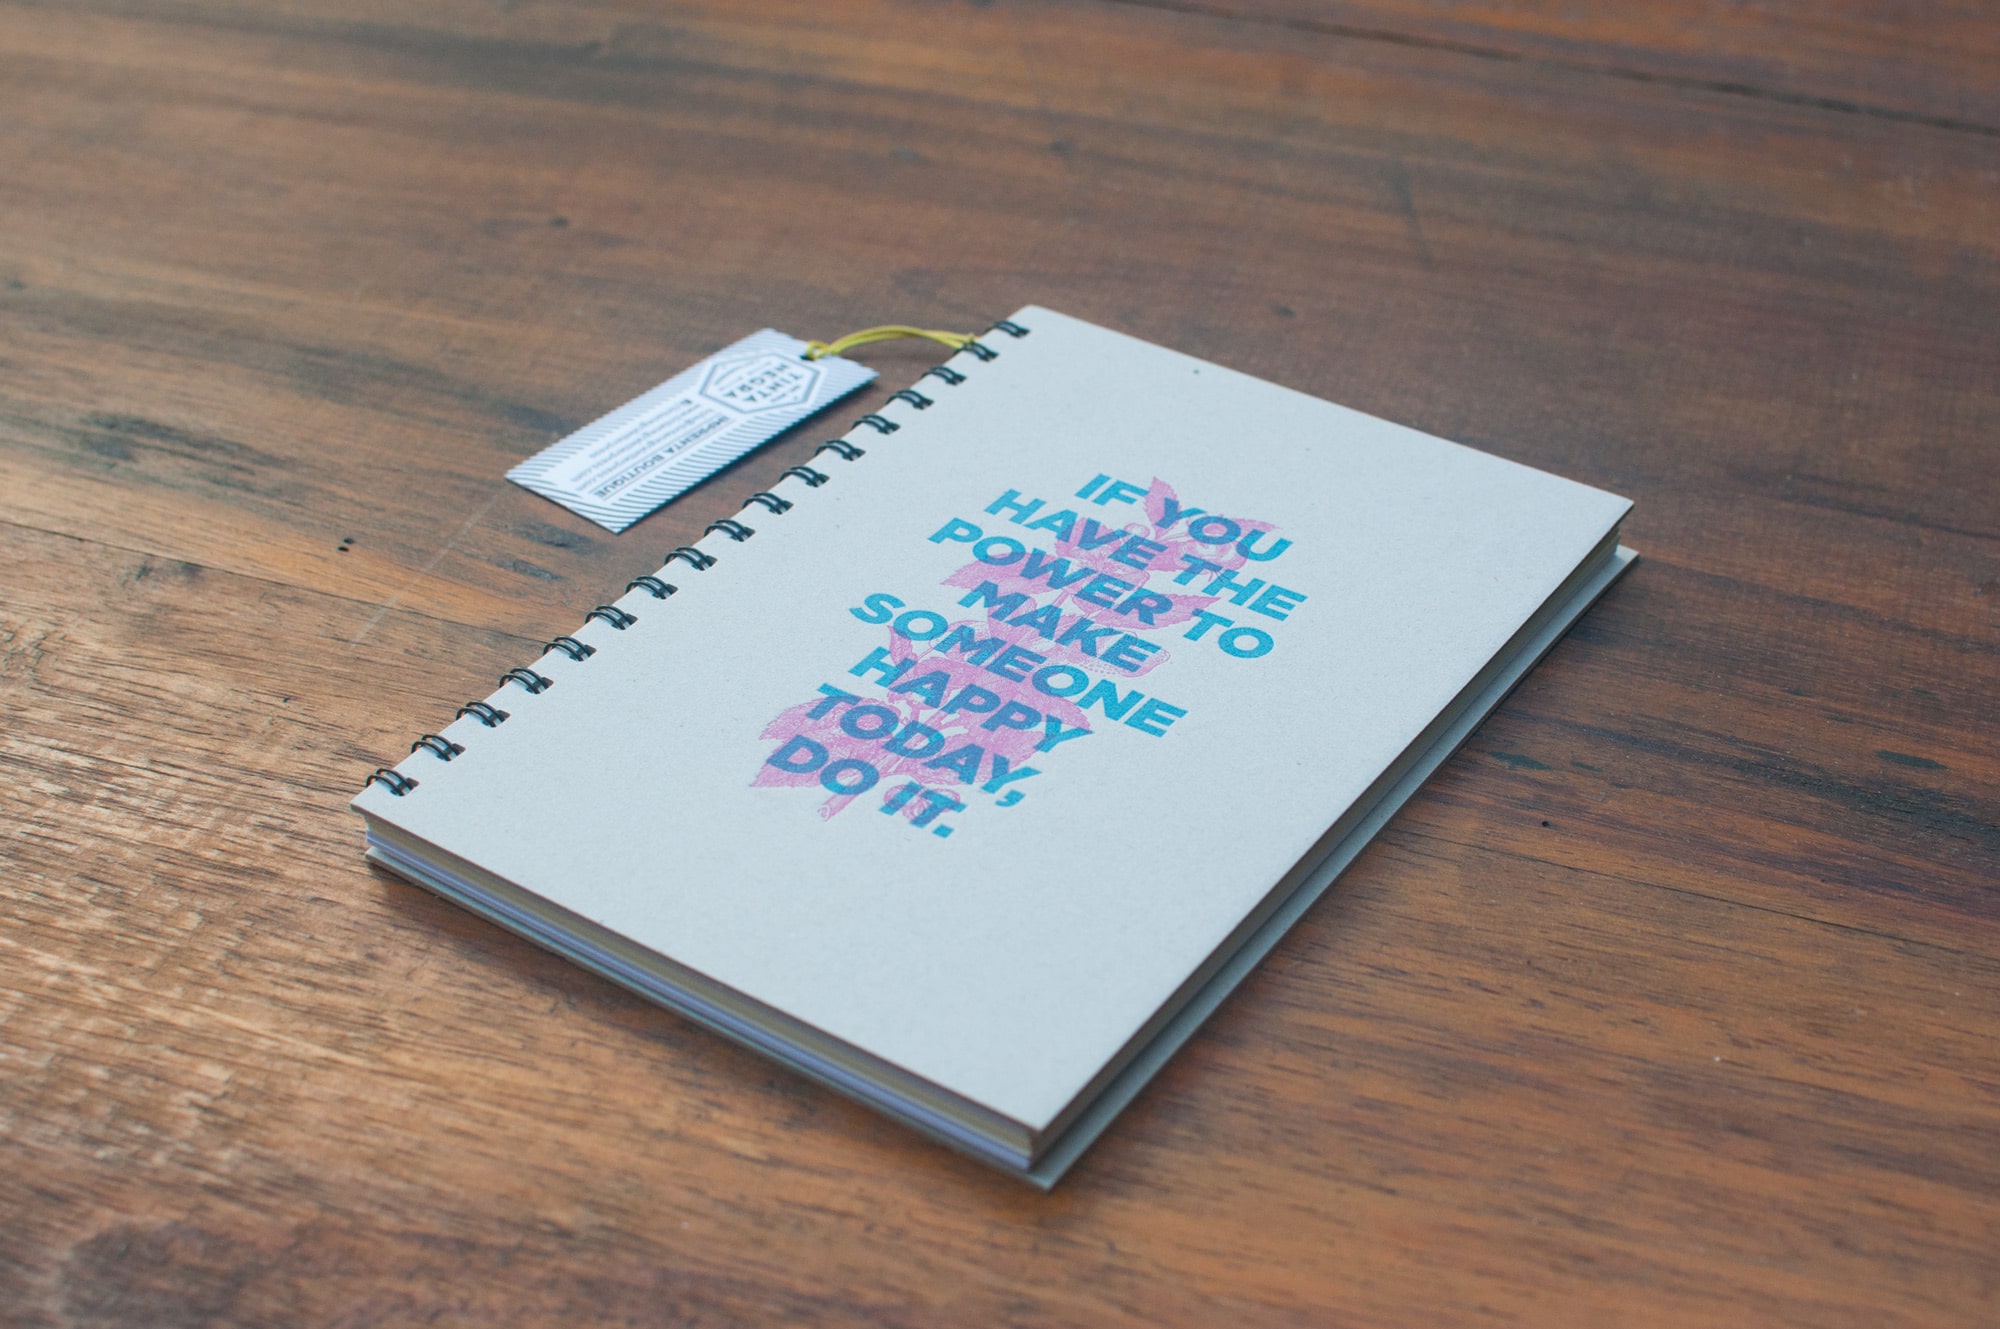 IF YOU
HAVE THE
POWER TO
MAKE
SOMEONE
HAPPY
TODAY,
DO IT.
TINTA
NEGRA
IMPRENTA BOUTIQUE